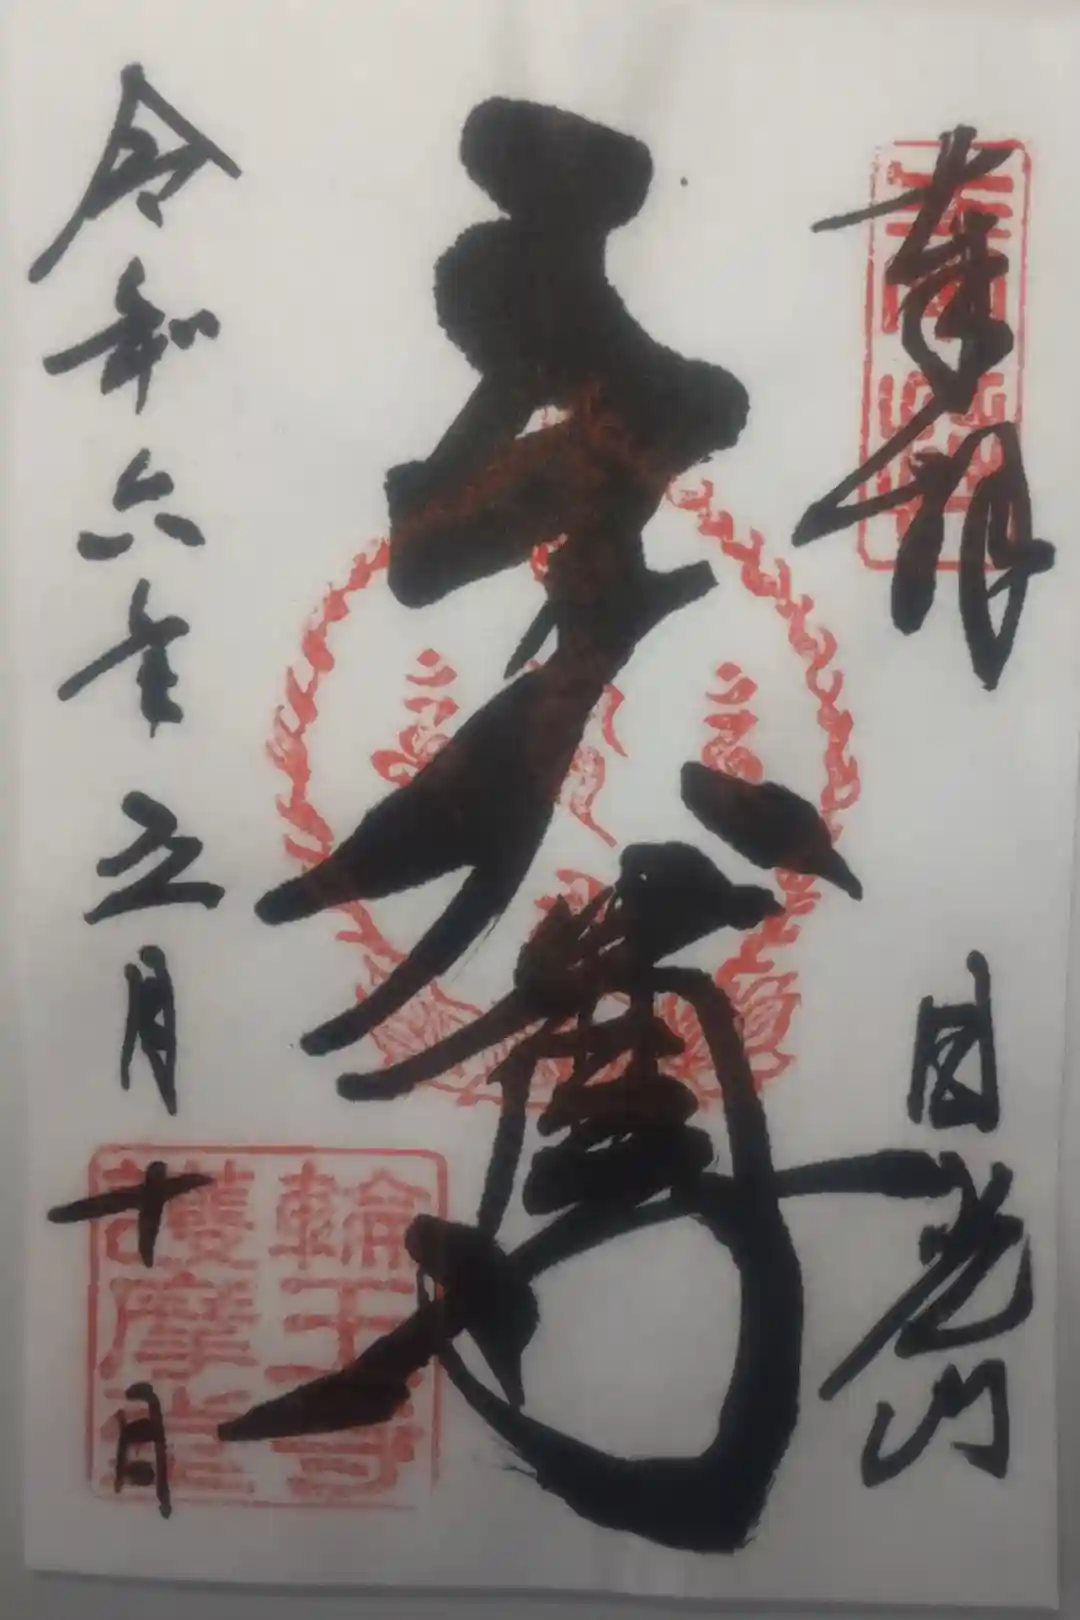 奉拝 日光山
五大尊
令和六年五月十日
輪王寺
護摩堂